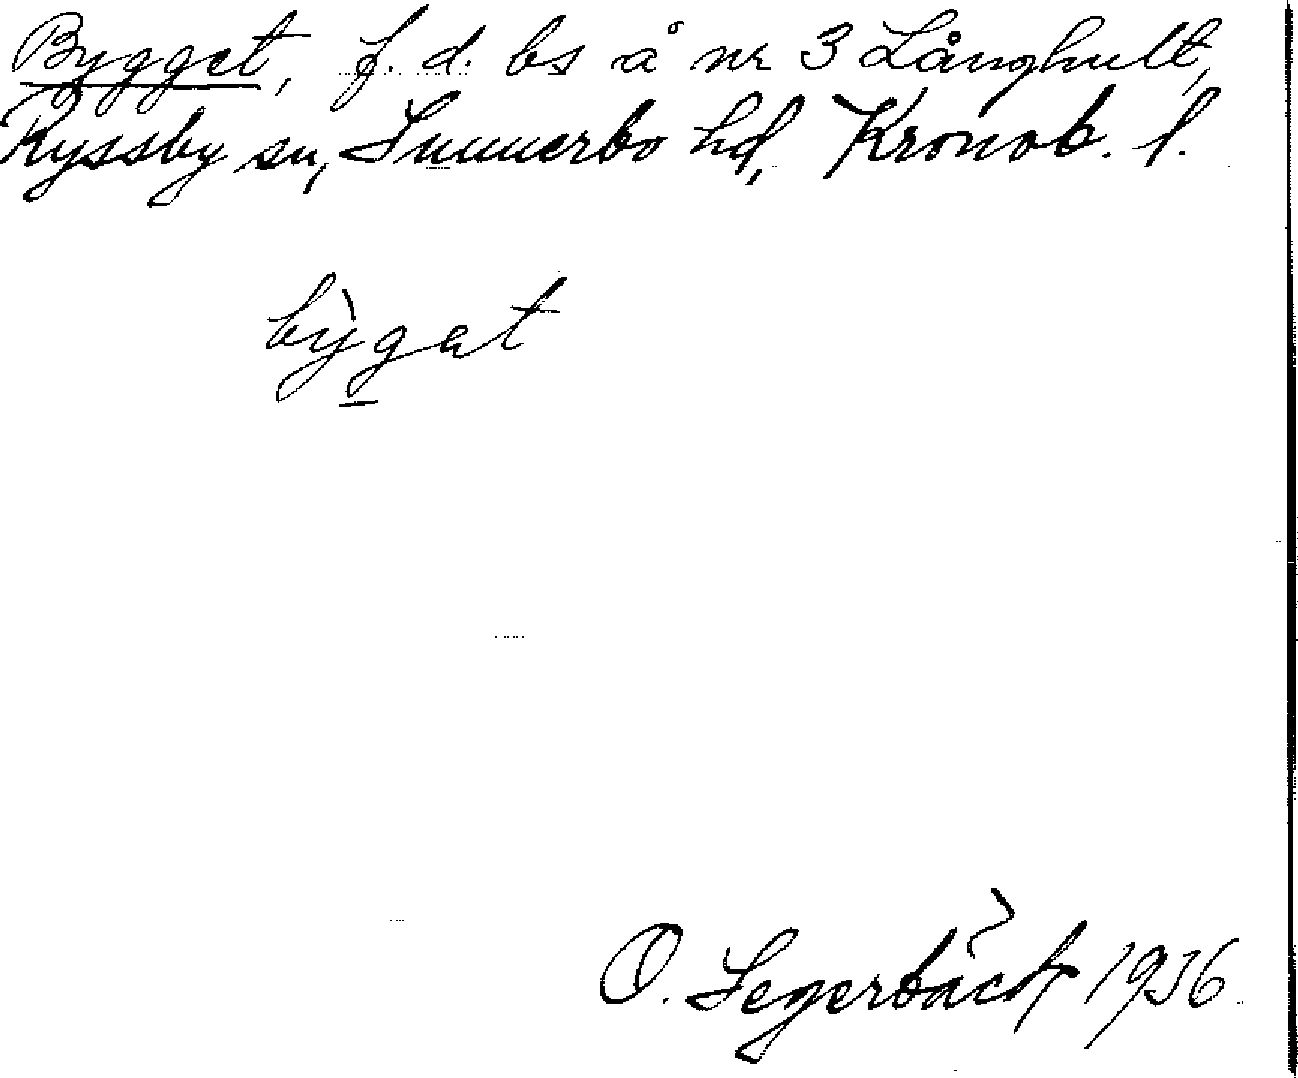 Bygget, f. d. bs å nr 3 Långhult,
Ryssby sn, Sunnerbo hd, Kronob. l.
bỳgat
O. Segerbäck 1936.